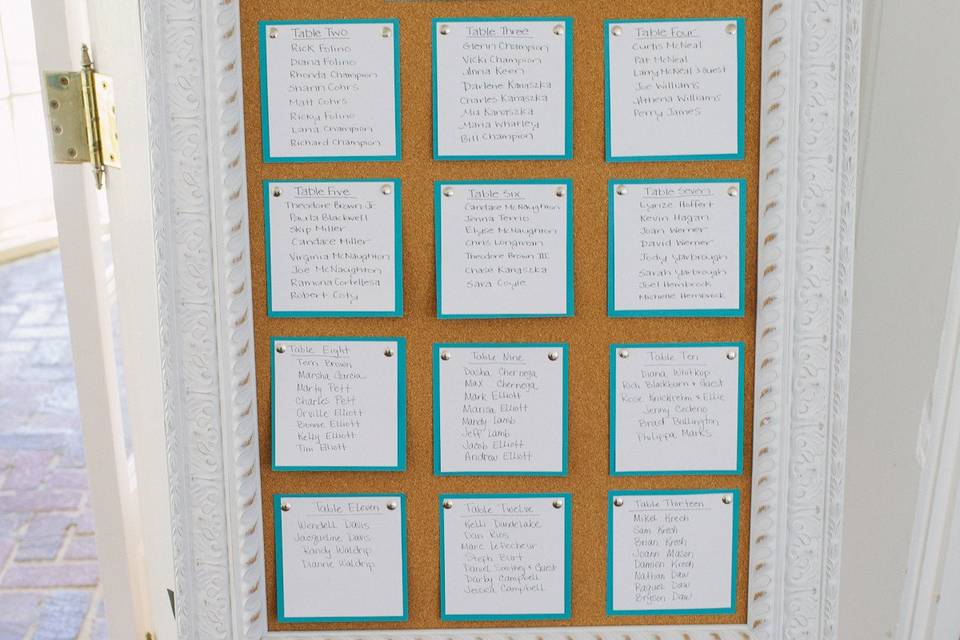 Table Two
Rick Folino
Diana Folino
Rhonda Champion
Shann Cohrs
Matt Cohrs
Ricky Folino
Lana Champion
Richard Champion
Table Three
Glenn Champion
Vicki Champion
Anna Keen
Darlene Kanaszka
Charles Kanaszka
Mia Kanaszka
Maria Wharley
Bill Champion
Table Four
Curtis McNeal
Pat McNeal
Larry McNeal & Guest
Joe Williams
Athena Williams
Perry James
Table Five
Theodore Brown Jr.
Paula Blackwell
Skip Miller
Candace Miller
Virginia McNaughton
Joe McNaughton
Ramona Cortellesa
Robert Coty
Table Six
Candace McNaughton
Jenna Terrio
Elyse McNaughton
Chris Longmain
Theodore Brown III
Chase Kanaszka
Sara Coyle
Table Seven
Lynze Hoffert
Kevin Hagan
Joan Werner
David Werner
Jody Yarbrough
Sarah Yarbrough
Joel Hembrock
Michelle Hembrock
Table Eight
Terri Brown
Marsha Garcia
Marty Pett
Charles Pett
Orville Elliott
Bonnie Elliott
Kelly Elliott
Tim Elliott
Table Nine
Dasha Chernega
Max Chernega
Mark Elliott
Marisa Elliott
Mandy Lamb
Jeff Lamb
Jacob Elliott
Andrew Elliott
Table Ten
Diana Whitkop
Rich Blackburn & Guest
Rose & Ellie
Jenny Cedeno
Brad Bullington
Philippa Marks
Table Eleven
Wendell Davis
Jacqueline Davis
Randy Waldrip
Dianne Waldrip
Table Twelve
Kelli Dundelake
Dan Rios
Marc LePecheur
Steph Burt
Daniel & Guest
Darby Campbell
Jessica Campbell
Table Thirteen
Mikel Krech
Sam Krech
Brian Krech
Joann Mason
Damien Krech
Nathan Daw
Raquel Daw
Bryson Daw